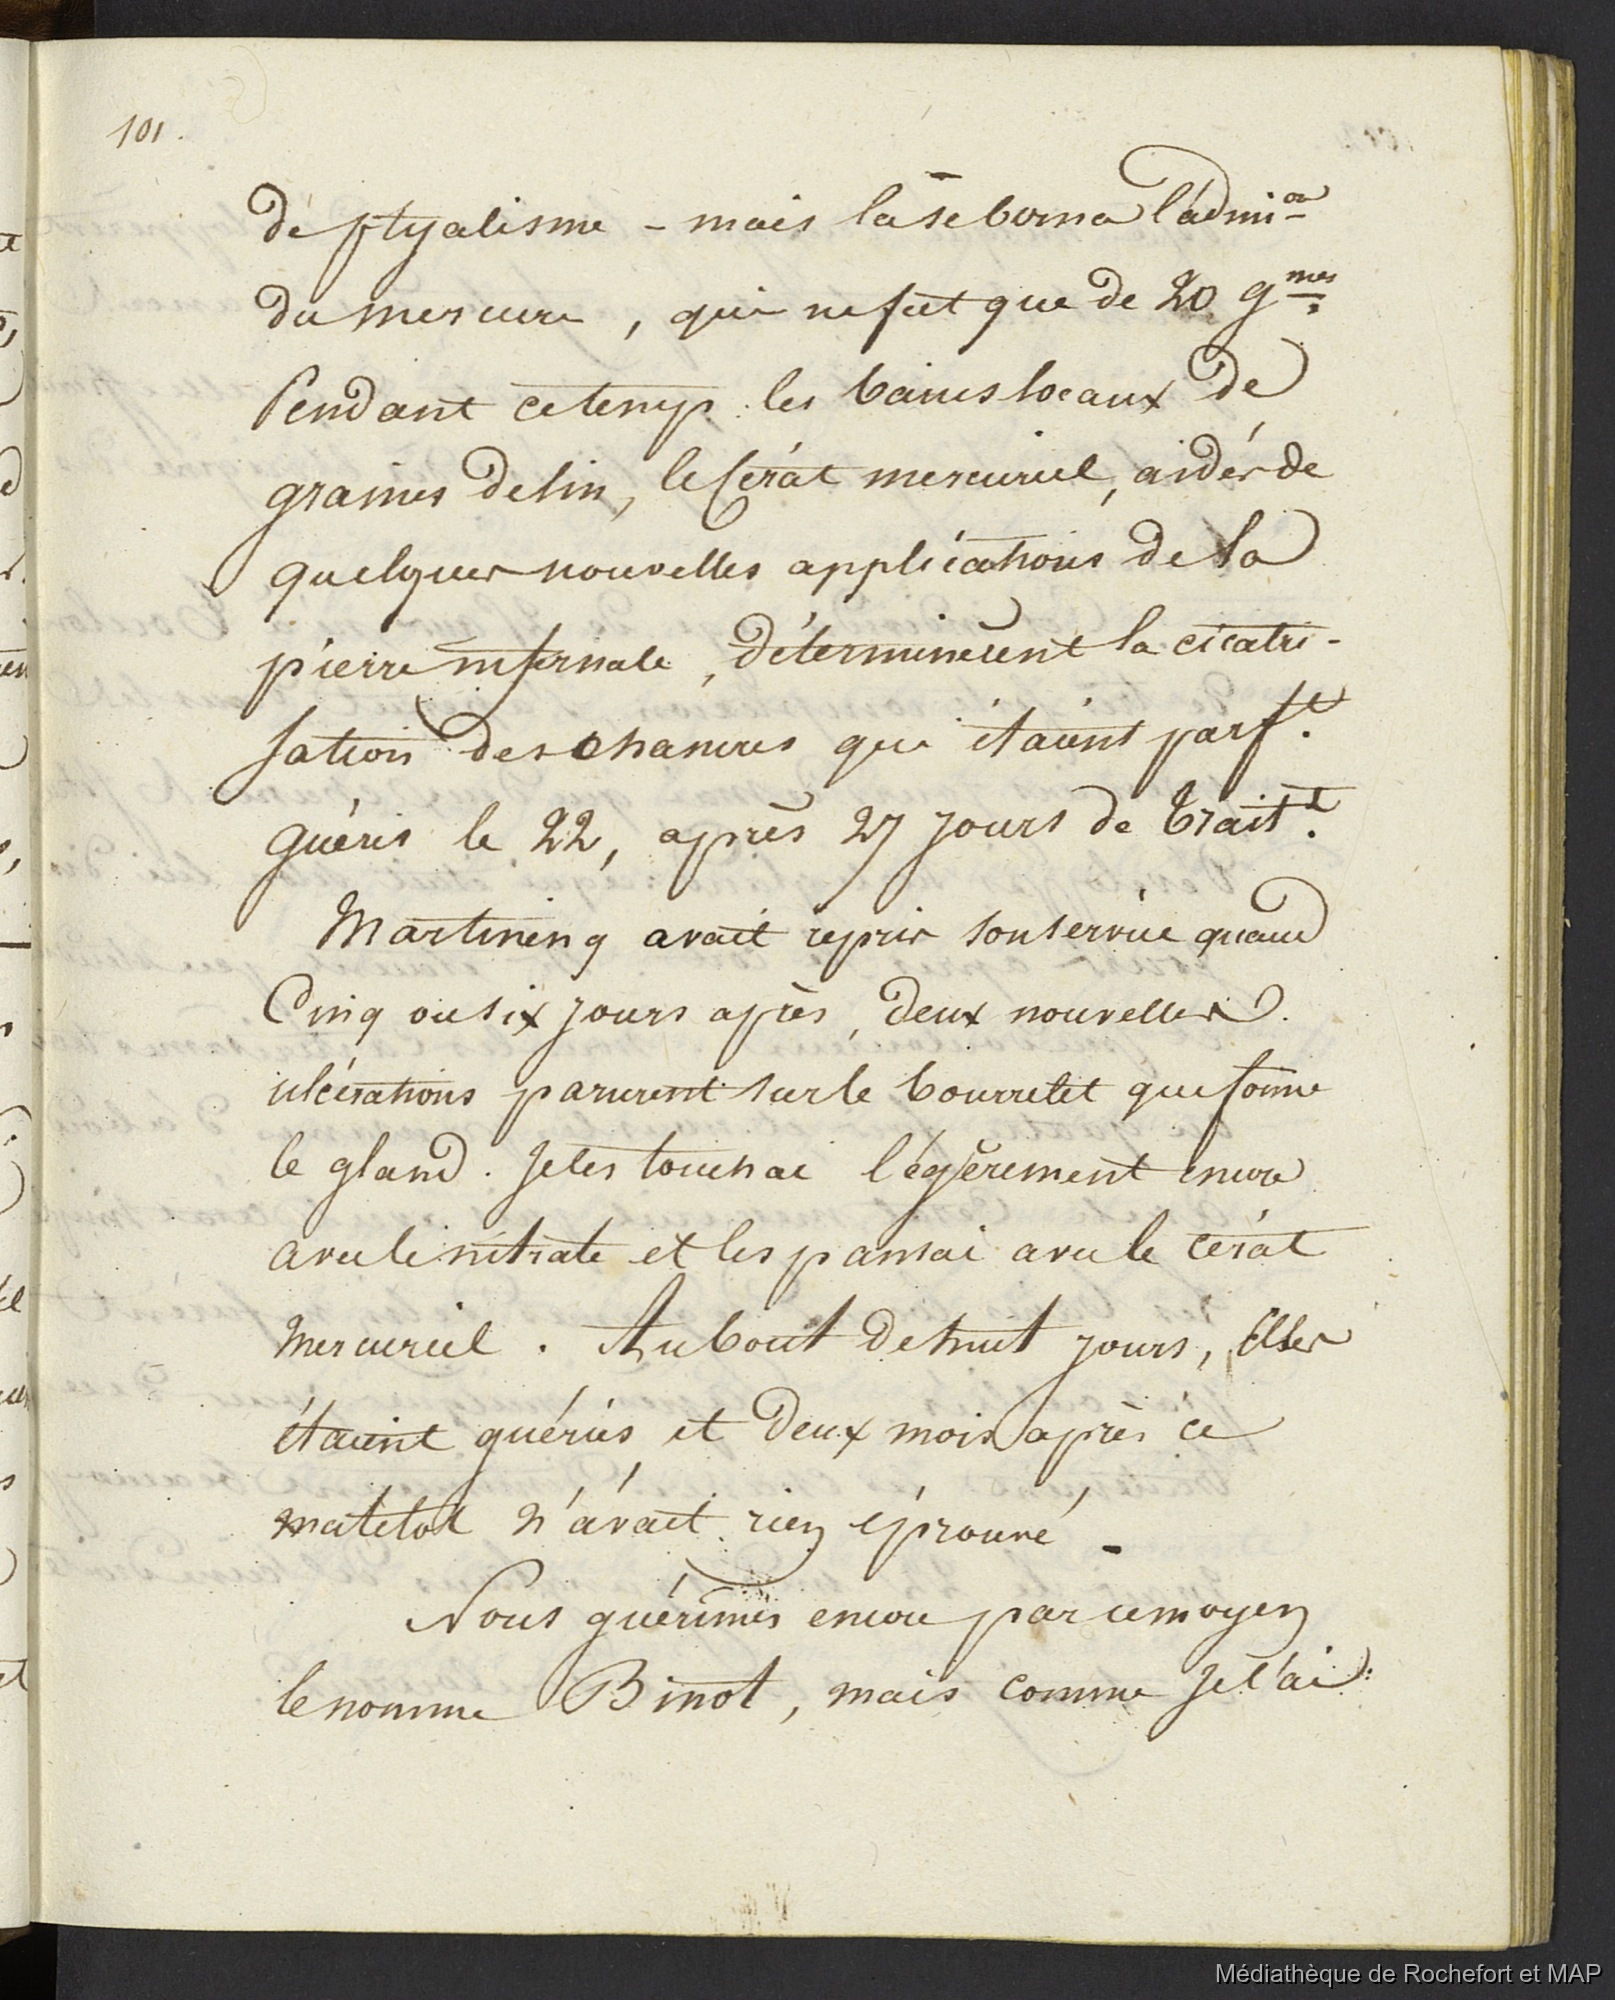 101.
de ptyalisme - mais là se borna l'admi.on
du mercure, qui ne fut que de 20 g.mes
Pendant ce temps les bains locaux de
graines de lin, le Cérat mercuriel, aidés de
quelques nouvelles applications de la
pierre infernale, déterminèrent la cicatri-
sation des chancres qui étaient parf.t
guéris le 22, après 27 jours de trait.t
Martineng avait repris son service quand
Cinq ou six jours après, deux nouvelles
ulcérations parurent sur le bourrelet que forme
le gland. Je les touchai légèrement encore
avec le nitrate et les pansai avec le cérat
mercuriel. Au bout de huit jours, Elles
étaient guéries, et deux mois après ce
matelot n'avait rien éprouvé -
Nous guérimes encore par ce moyen
le nomme Binot, mais comme je l'ai
Médiathèque de Rochefort et MAP